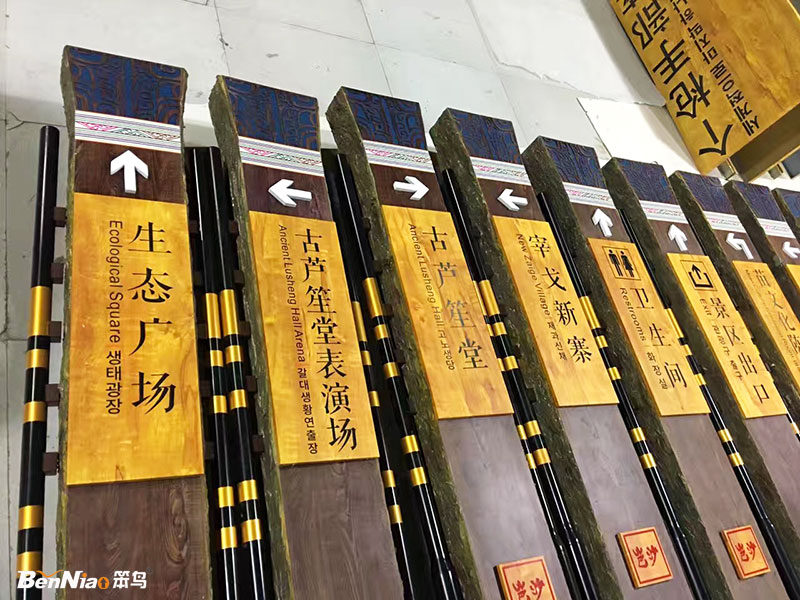 生态广场
Ecological Square 생태광장
古芦笙堂表演场
Ancient Lusheng Hall Arena 갈대생황연출장
古芦笙堂
Ancient Lusheng Hall 고노생당
宰戈新寨
New Zaige Village
卫生间
Restrooms 화장실
景区出口
Exit 관광구 출구
个枪手部
BenNiao 笨鸟